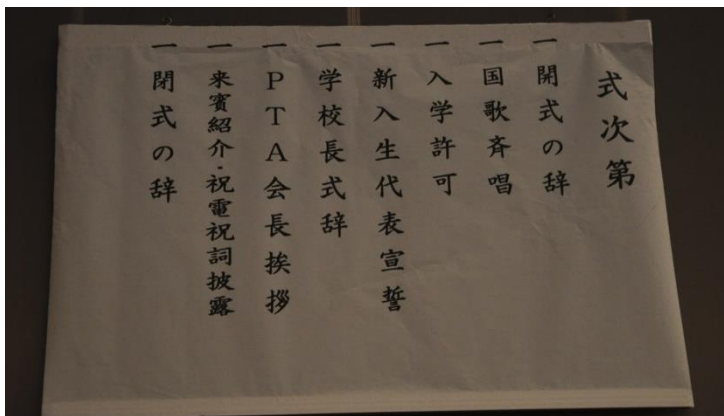 式次第
一 開式の辞
一 国歌斉唱
一 入学許可
一 新入生代表宣誓
一 学校長式辞
一 PTA会長挨拶
一 来賓紹介・祝電祝詞披露
一 閉式の辞